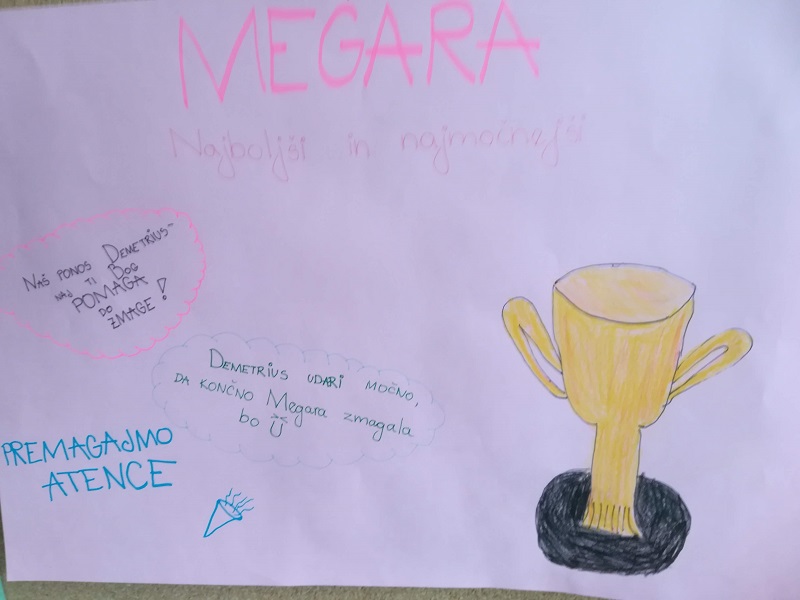 MEGARA
Najboljši in najmočnejši
NAŠ PONOS DEMETRIUS-
NAJ TI BOG
POMAGA
DO
ZMAGE!
DEMETRIUS UDARI MOČNO,
DA KONČNO Megara zmagala
bo
PREMAGAJMO
ATENCE